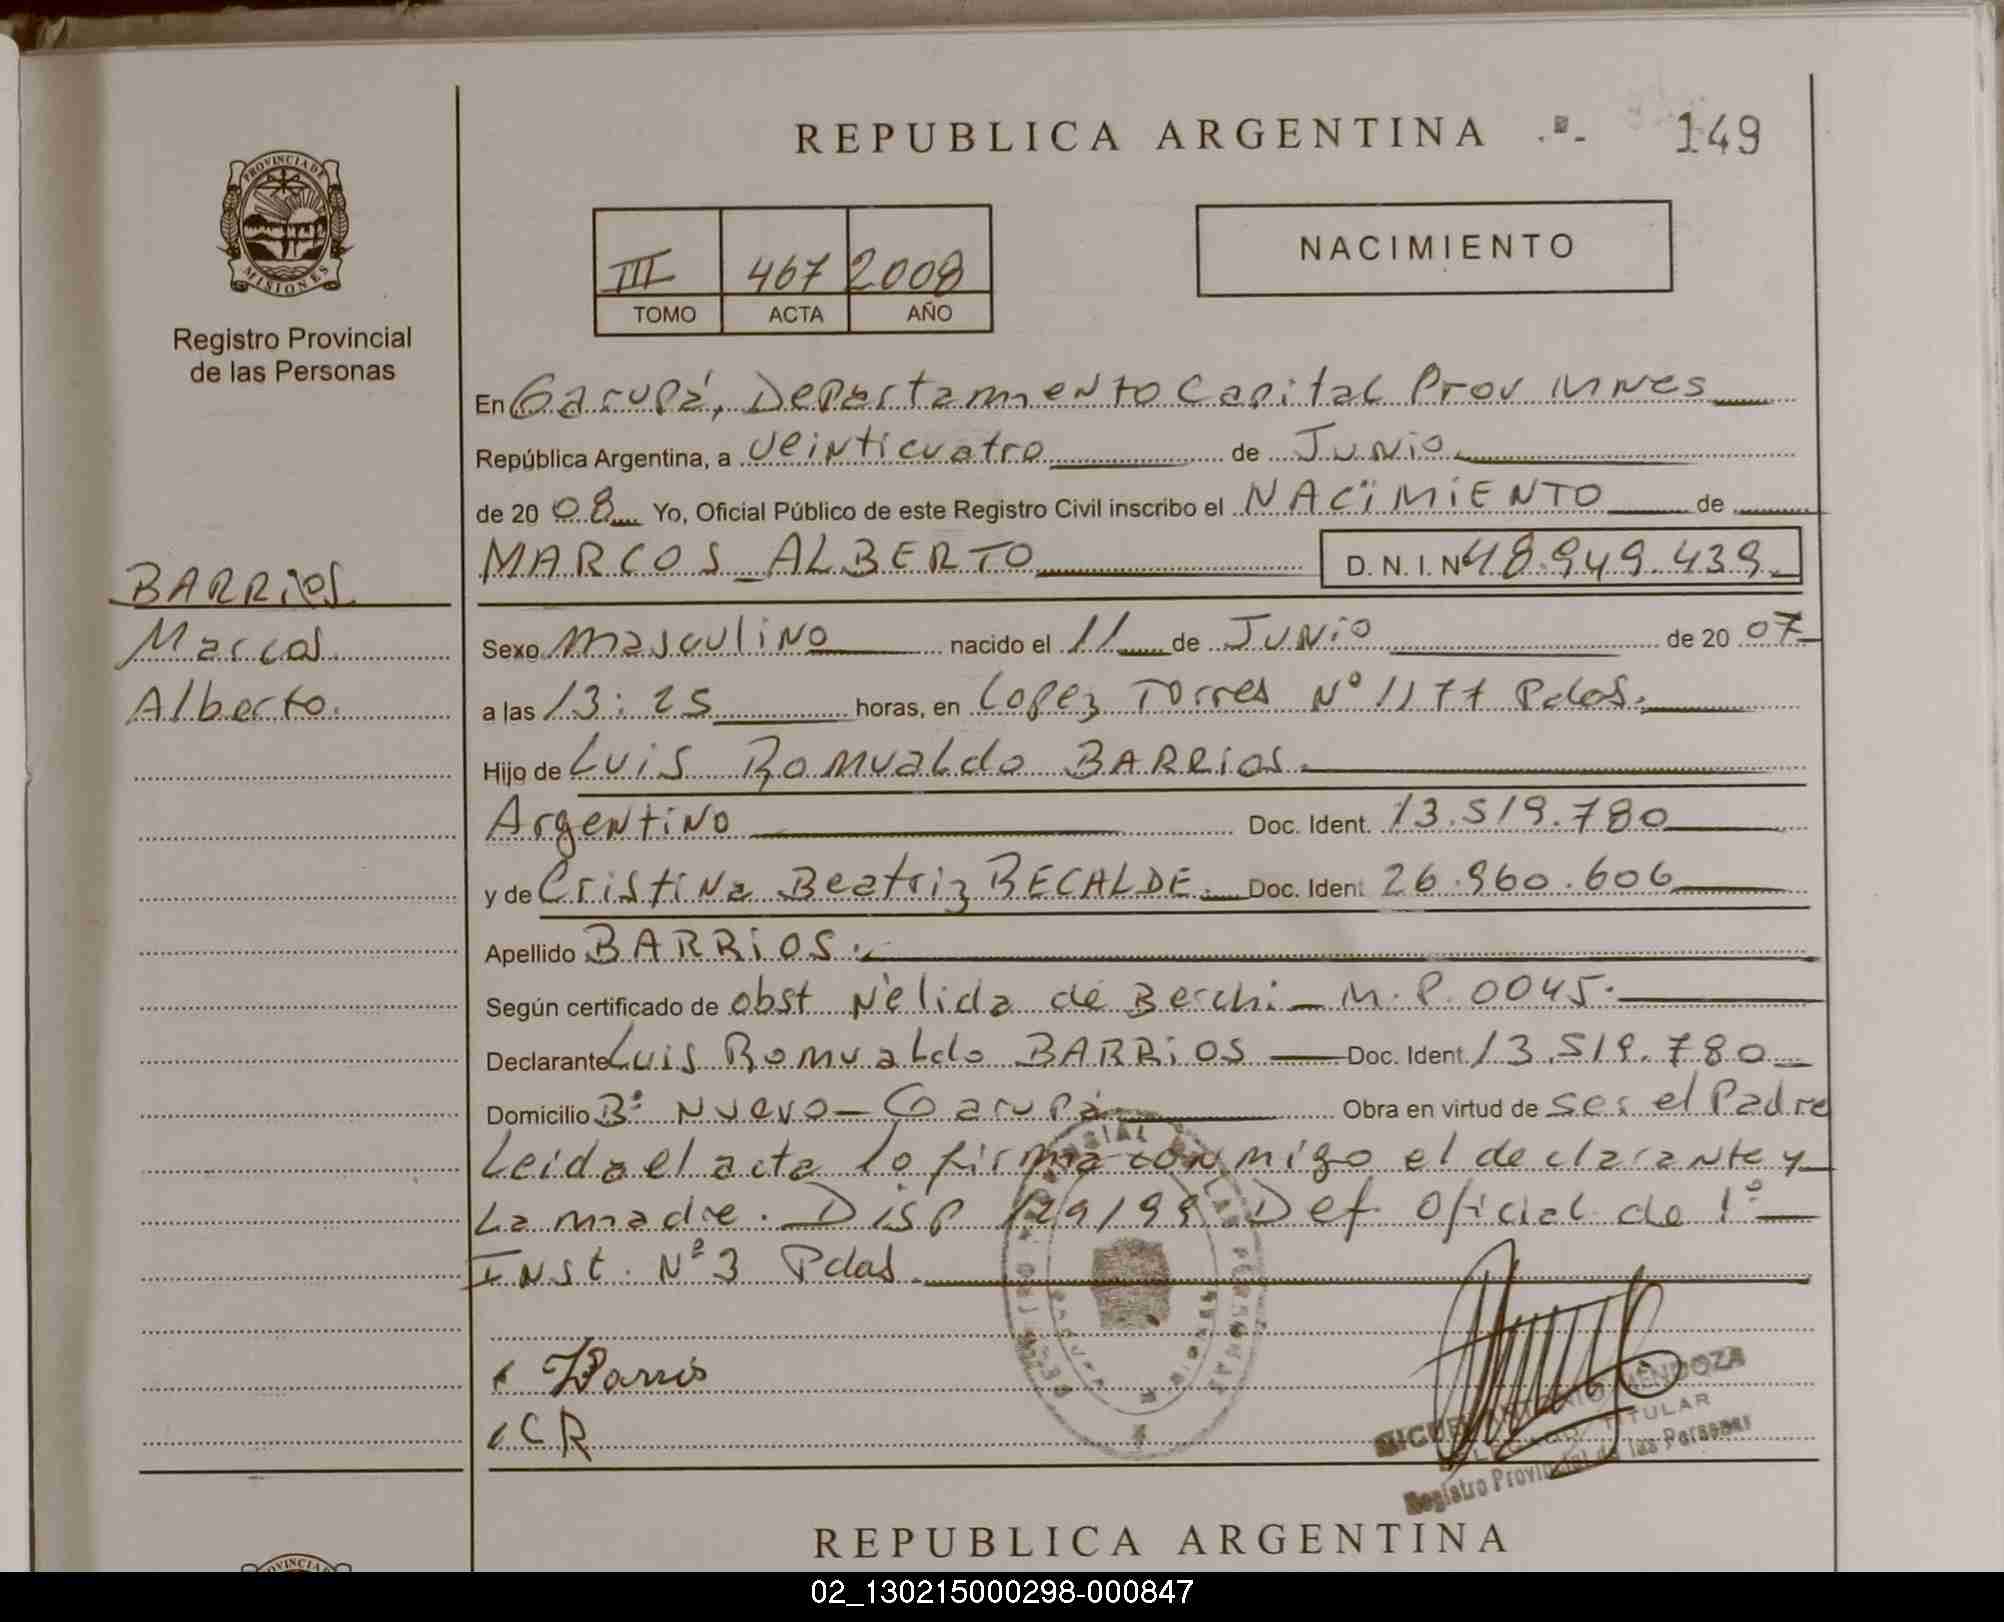 REPUBLICA ARGENTINA
149
PROVINCIA DE
MISIONES
Registro Provincial
de las Personas
III 467 2008
TOMO ACTA AÑO
NACIMIENTO
En Garupá, Departamento Capital Prov Mnes
República Argentina, a veinticuatro de Junio
de 20 08 Yo, Oficial Público de este Registro Civil inscribo el NACIMIENTO de
MARCOS ALBERTO D.N.I. Nº 48.949.439
BARRIOS
Marcos
Alberto.
Sexo Masculino nacido el 11 de Junio de 20 07
a las 13:25 horas, en Lopez Torres Nº 1177 Pdas.
Hijo de Luis Romualdo BARRIOS.
Argentino Doc. Ident. 13.519.780
y de Cristina Beatriz RECALDE. Doc. Ident 26.960.606
Apellido BARRIOS.
Según certificado de obst Nélida de Berchi - M.P. 0045.
Declarante Luis Romualdo BARRIOS Doc. Ident. 13.519.780
Domicilio Bº Nuevo - Garupá Obra en virtud de ser el Padre
Leida el acta lo firma conmigo el declarante y
La madre. Disp 129/99 Def. Oficial de 1º
Inst. Nº 3 Pdas.
Barrios
CR
MIGUEL ANTONIO MENDOZA
DELEGADO TITULAR
Registro Provincial de las Personas
REPUBLICA ARGENTINA
02_130215000298-000847